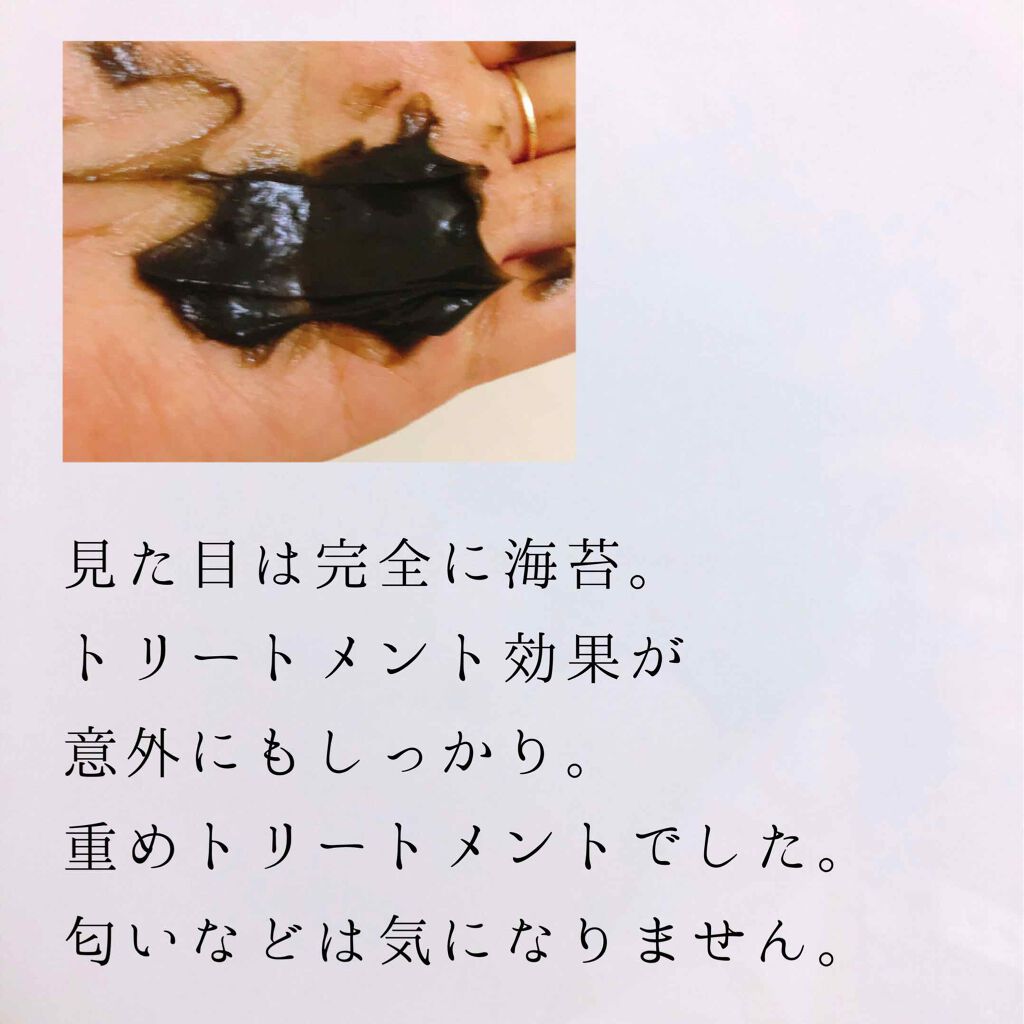 見た目は完全に海苔。
トリートメント効果が
意外にもしっかり。
重めトリートメントでした。
匂いなどは気になりません。